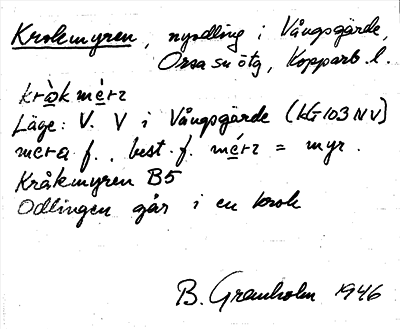 Krokmyren, nyodling i Vångsgärde,
Orsa sn ötg, Kopparb. l.
kròk mérz
Läge: V. V i Vångsgärde (kG103NV)
mera f. best. f. mérz = myr.
Kråkmyren B5
Odlingen går i en krok
B. Granholm 1946